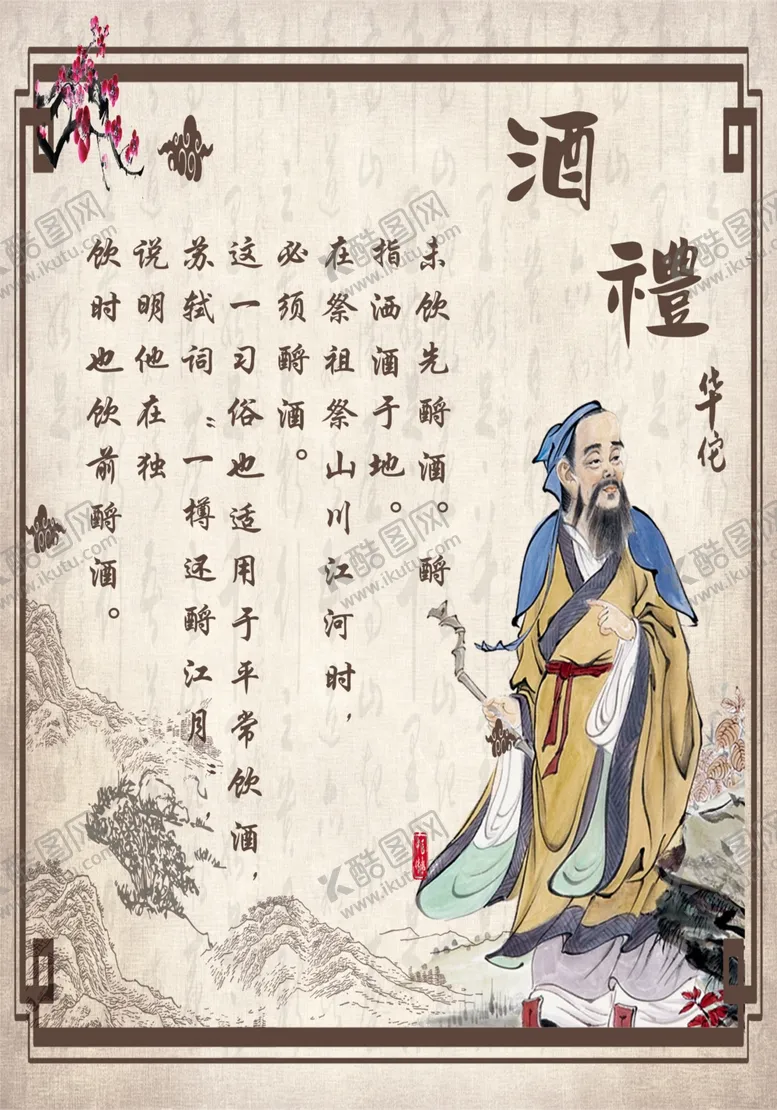 酒
禮
华佗
未饮先酹酒。酹,
指洒酒于地。
在祭祖祭山川江河时,
必须酹酒。
这一习俗也适用于平常饮酒,
苏轼词“一樽还酹江月”,
说明他在独
饮时也饮前酹酒。
酷图网
www.ikutu.com